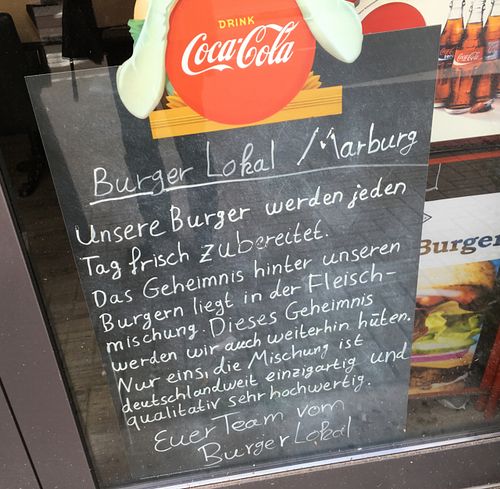 DRINK
Coca-Cola
Burger Lokal / Marburg
Unsere Burger werden jeden
Tag frisch zubereitet.
Das Geheimnis hinter unseren
Burgern liegt in der Fleisch-
mischung. Dieses Geheimnis
werden wir auch weiterhin hüten.
Nur eins, die Mischung ist
deutschlandweit einzigartig und
qualitativ sehr hochwertig.
Euer Team vom
Burger Lokal
Burger